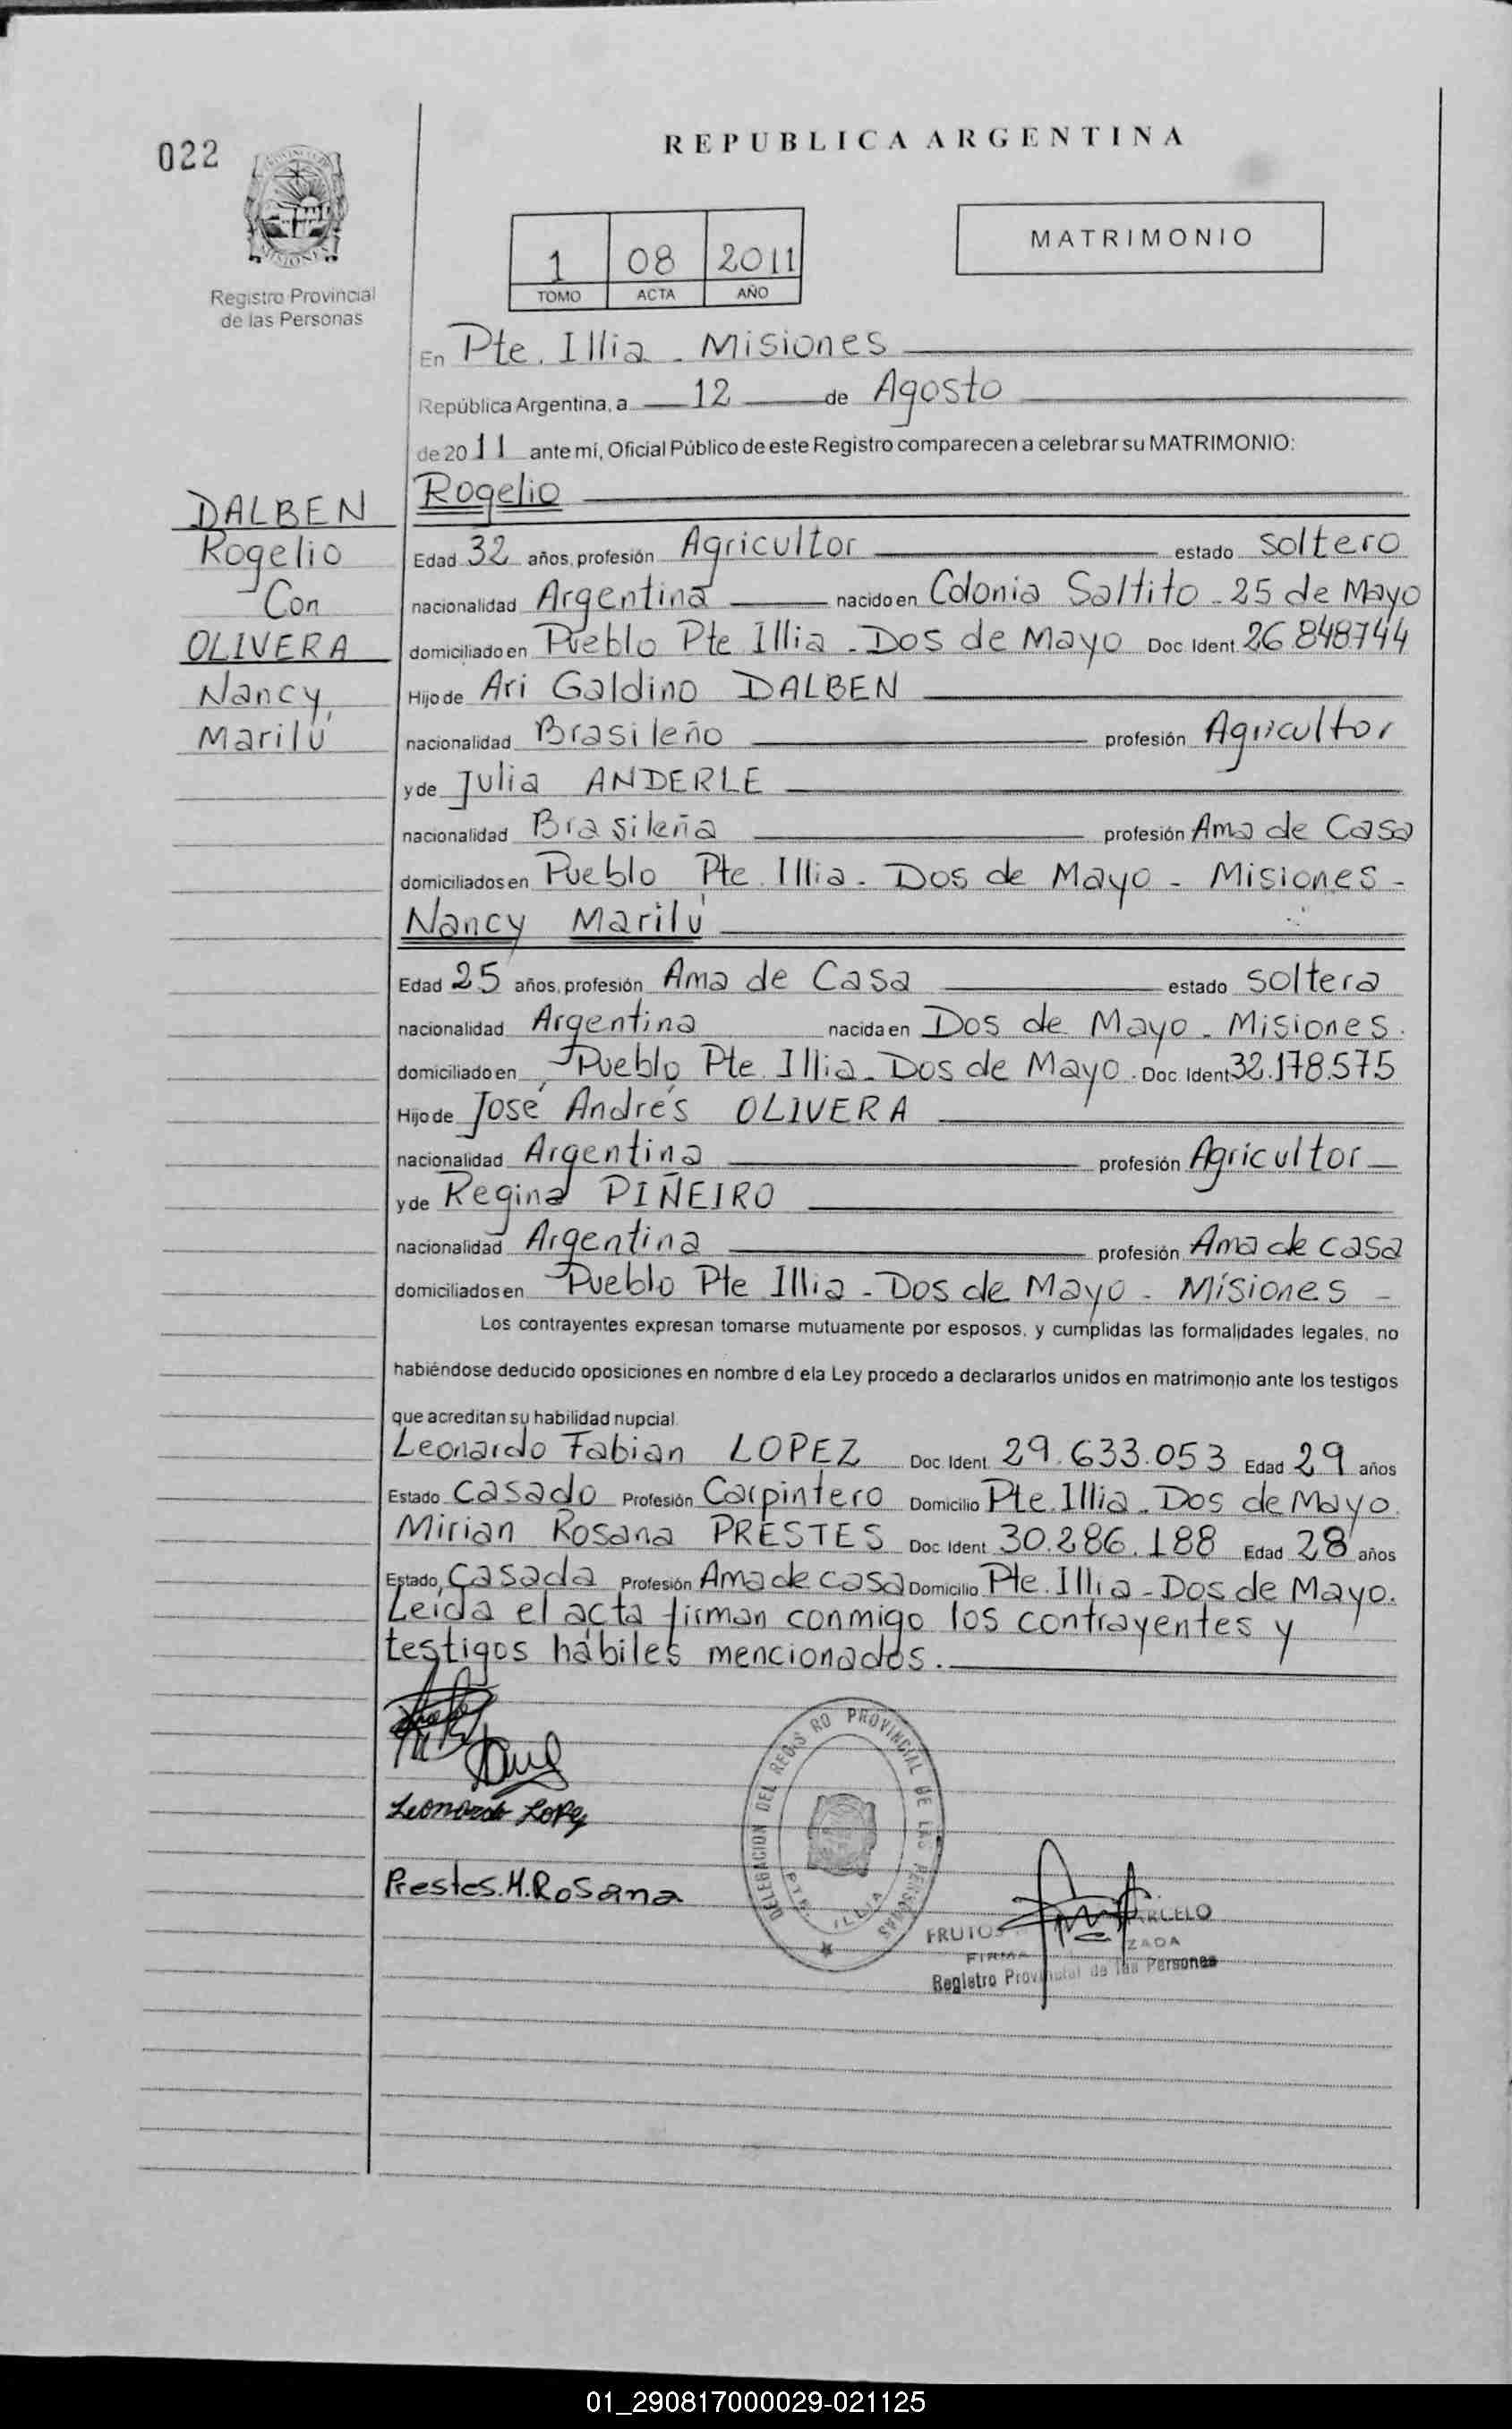 022
REPUBLICA ARGENTINA
PROVINCIA DE
MISIONES
Registro Provincial
de las Personas
1 08 2011
TOMO ACTA AÑO
MATRIMONIO
En Pte. Illia - Misiones
República Argentina, a 12 de Agosto
de 2011 ante mí, Oficial Público de este Registro comparecen a celebrar su MATRIMONIO:
DALBEN
Rogelio
Con
OLIVERA
Nancy
Marilú
Rogelio
Edad 32 años, profesión Agricultor estado soltero
nacionalidad Argentina nacido en Colonia Saltito - 25 de Mayo
domiciliado en Pueblo Pte Illia - Dos de Mayo Doc. Ident. 26.848.744
Hijo de Ari Galdino DALBEN
nacionalidad Brasileño profesión Agricultor
y de Julia ANDERLE
nacionalidad Brasileña profesión Ama de Casa
domiciliados en Pueblo Pte. Illia - Dos de Mayo - Misiones -
Nancy Marilú
Edad 25 años, profesión Ama de Casa estado soltera
nacionalidad Argentina nacida en Dos de Mayo - Misiones.
domiciliado en Pueblo Pte. Illia - Dos de Mayo. Doc. Ident 32.178.575
Hijo de José Andrés OLIVERA
nacionalidad Argentina profesión Agricultor
y de Regina PIÑEIRO
nacionalidad Argentina profesión Ama de casa
domiciliados en Pueblo Pte Illia - Dos de Mayo - Misiones -
Los contrayentes expresan tomarse mutuamente por esposos, y cumplidas las formalidades legales, no
habiéndose deducido oposiciones en nombre d ela Ley procedo a declararlos unidos en matrimonio ante los testigos
que acreditan su habilidad nupcial.
Leonardo Fabian LOPEZ Doc. Ident. 29.633.053 Edad 29 años
Estado Casado Profesión Carpintero Domicilio Pte. Illia - Dos de Mayo.
Mirian Rosana PRESTES Doc. Ident. 30.286.188 Edad 28 años
Estado Casada Profesión Ama de casa Domicilio Pte. Illia - Dos de Mayo.
Leida el acta firman conmigo los contrayentes y
testigos hábiles mencionados.
Leonardo Lopez
Prestes. M. Rosana
DELEGACION DEL REGIS RO PROVINCIAL DE LAS PERSONAS
PTE. ILLIA
FRUTOS
FIRMA
Registro Provincial de las Personas
01_290817000029-021125